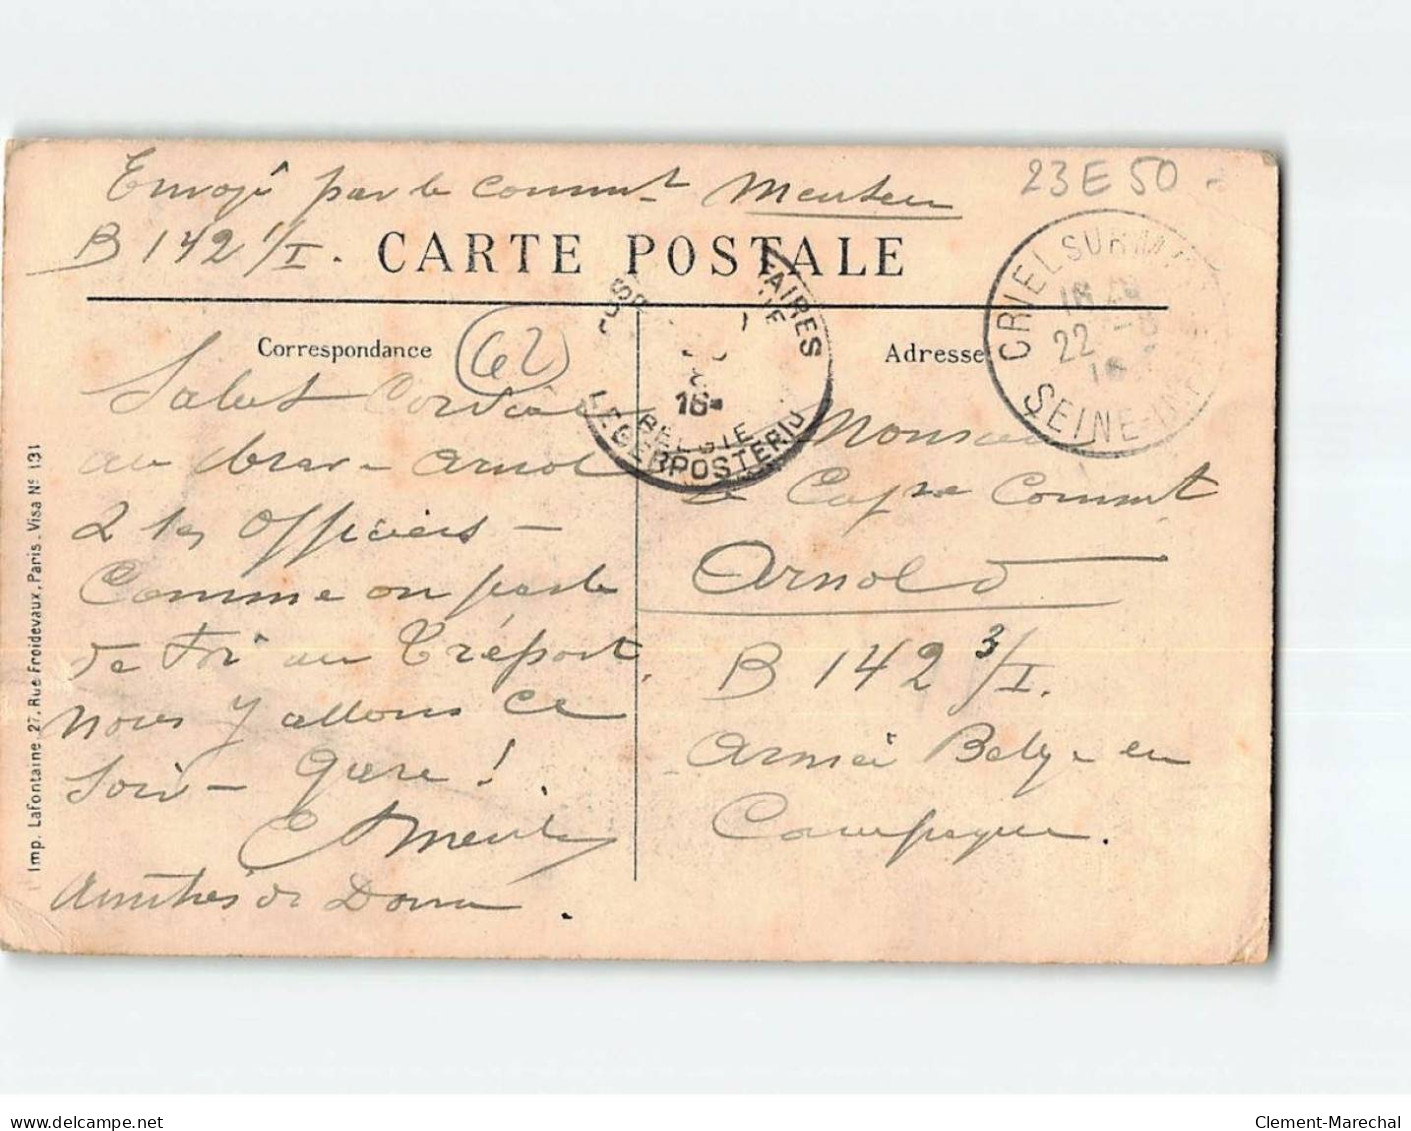 Envoyé par le Commmt Menten
23E50
B 142 1/I.
CARTE POSTALE
CRIEL SUR M
SEINE-INF
22
16
AIRES
BELGIE
LEGERPOSTERIJ
16
Correspondance
62
Adresse
Salut Cordial
au brave Arnold
& les Officiers -
Comme on parle
de Foi au Tréport
nous y allons ce
soir -
!
Amitiés de
Monsieur
le Capne Commt
Arnold
B 142 3/I.
Armée Belge en
Campagne.
Imp. Lafontaine 27, Rue Froidevaux, Paris. Visa No 131
www.delcampe.net
Clement-Marechal